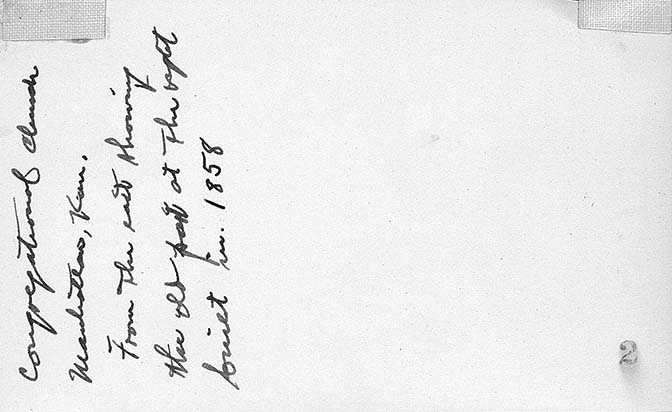 Congregational Church
Manhattan, Kan.
From the east showing
the old part at the right
built in. 1858
2